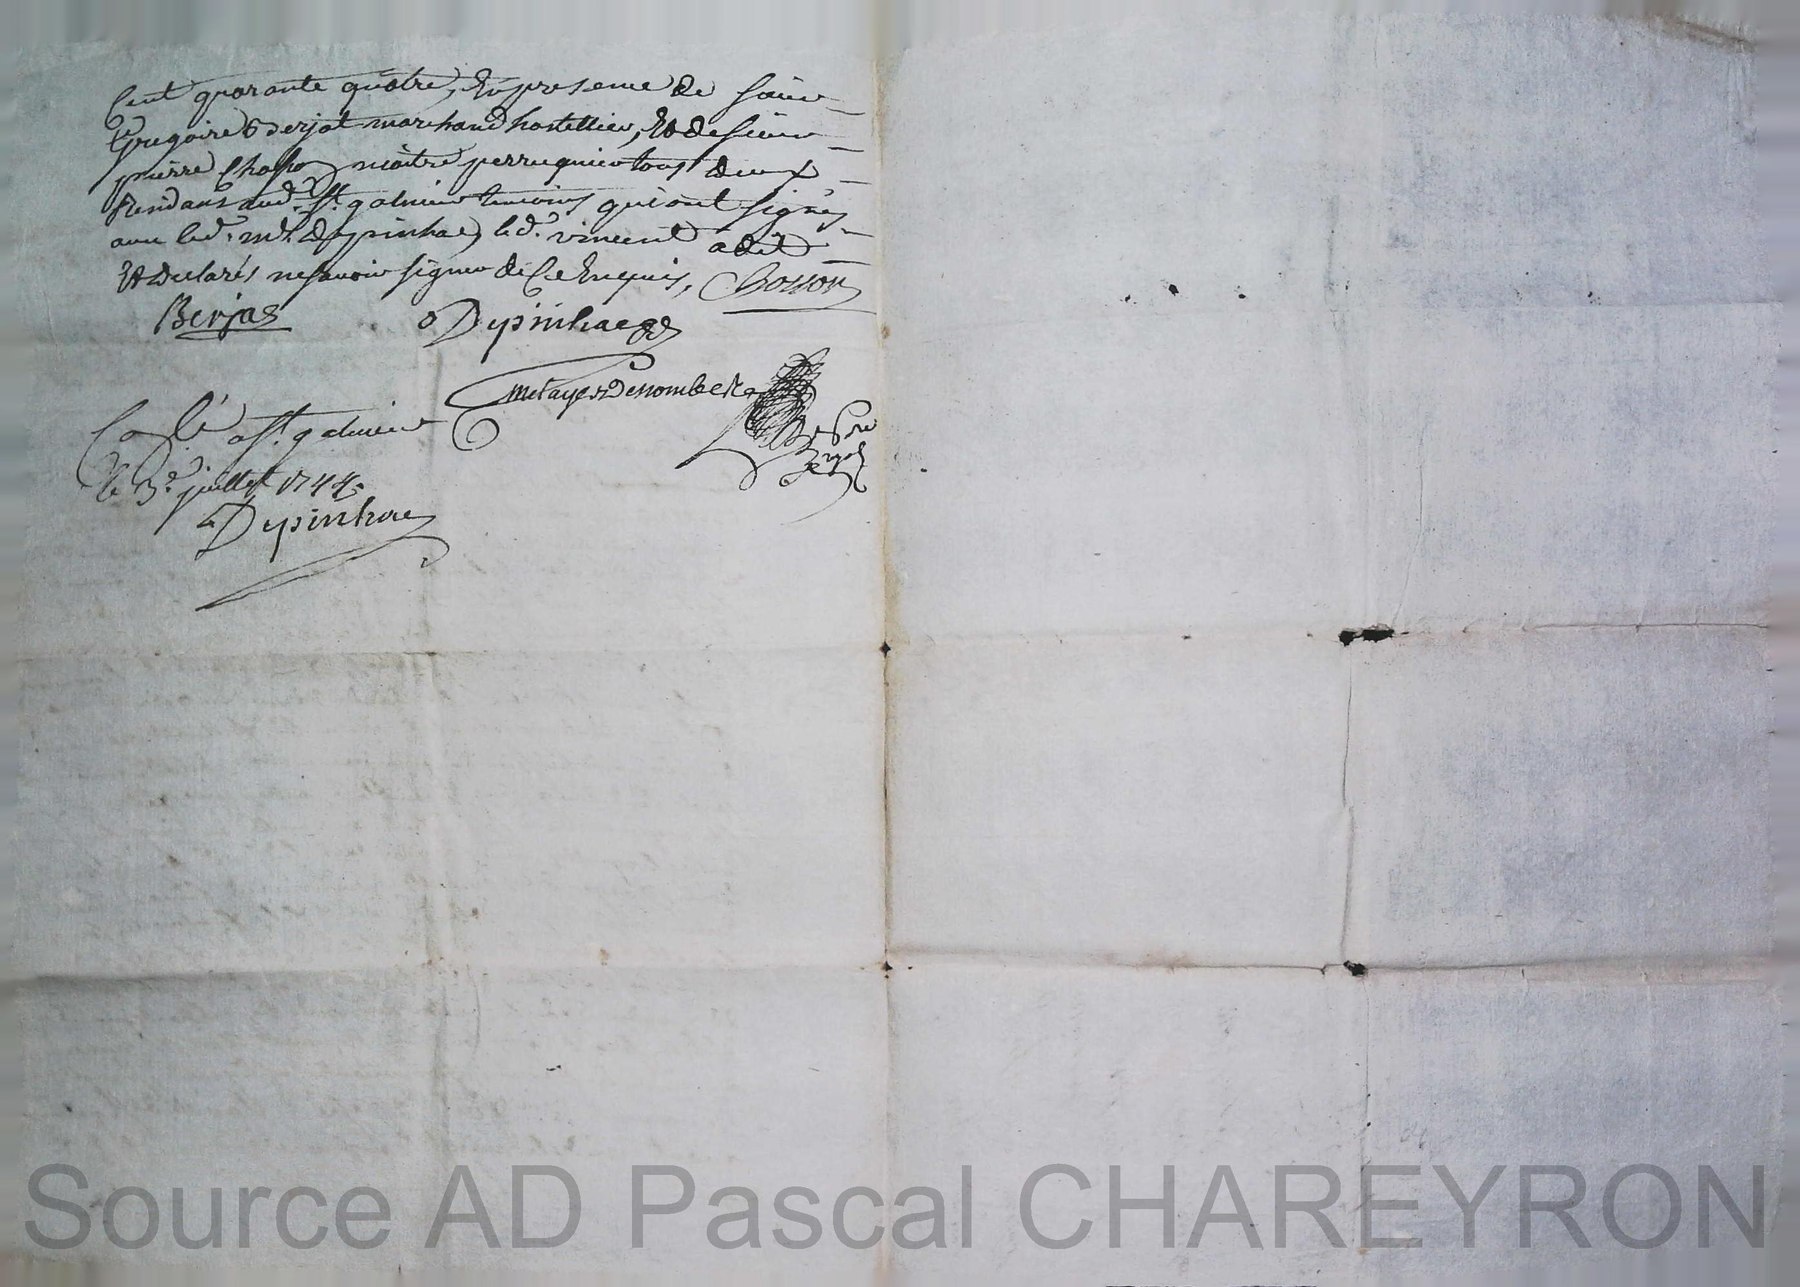 Cent quarante quatre, En presence de sieur
Gregoire Berjat marchand hostellier, Et de sieur
pierre maitre perruquier tous deux
Residans aud. St. galmier temoins qui ont signés
avec led. Mr. Depinhac, led. vincent a dit
Et declarés ne savoir signer de ce Enquis,
Berjat Depinhac
metayer Desnombe
Controlé a St. galmier
le 3e juillet 1744
Depinhac
Source AD Pascal CHAREYRON